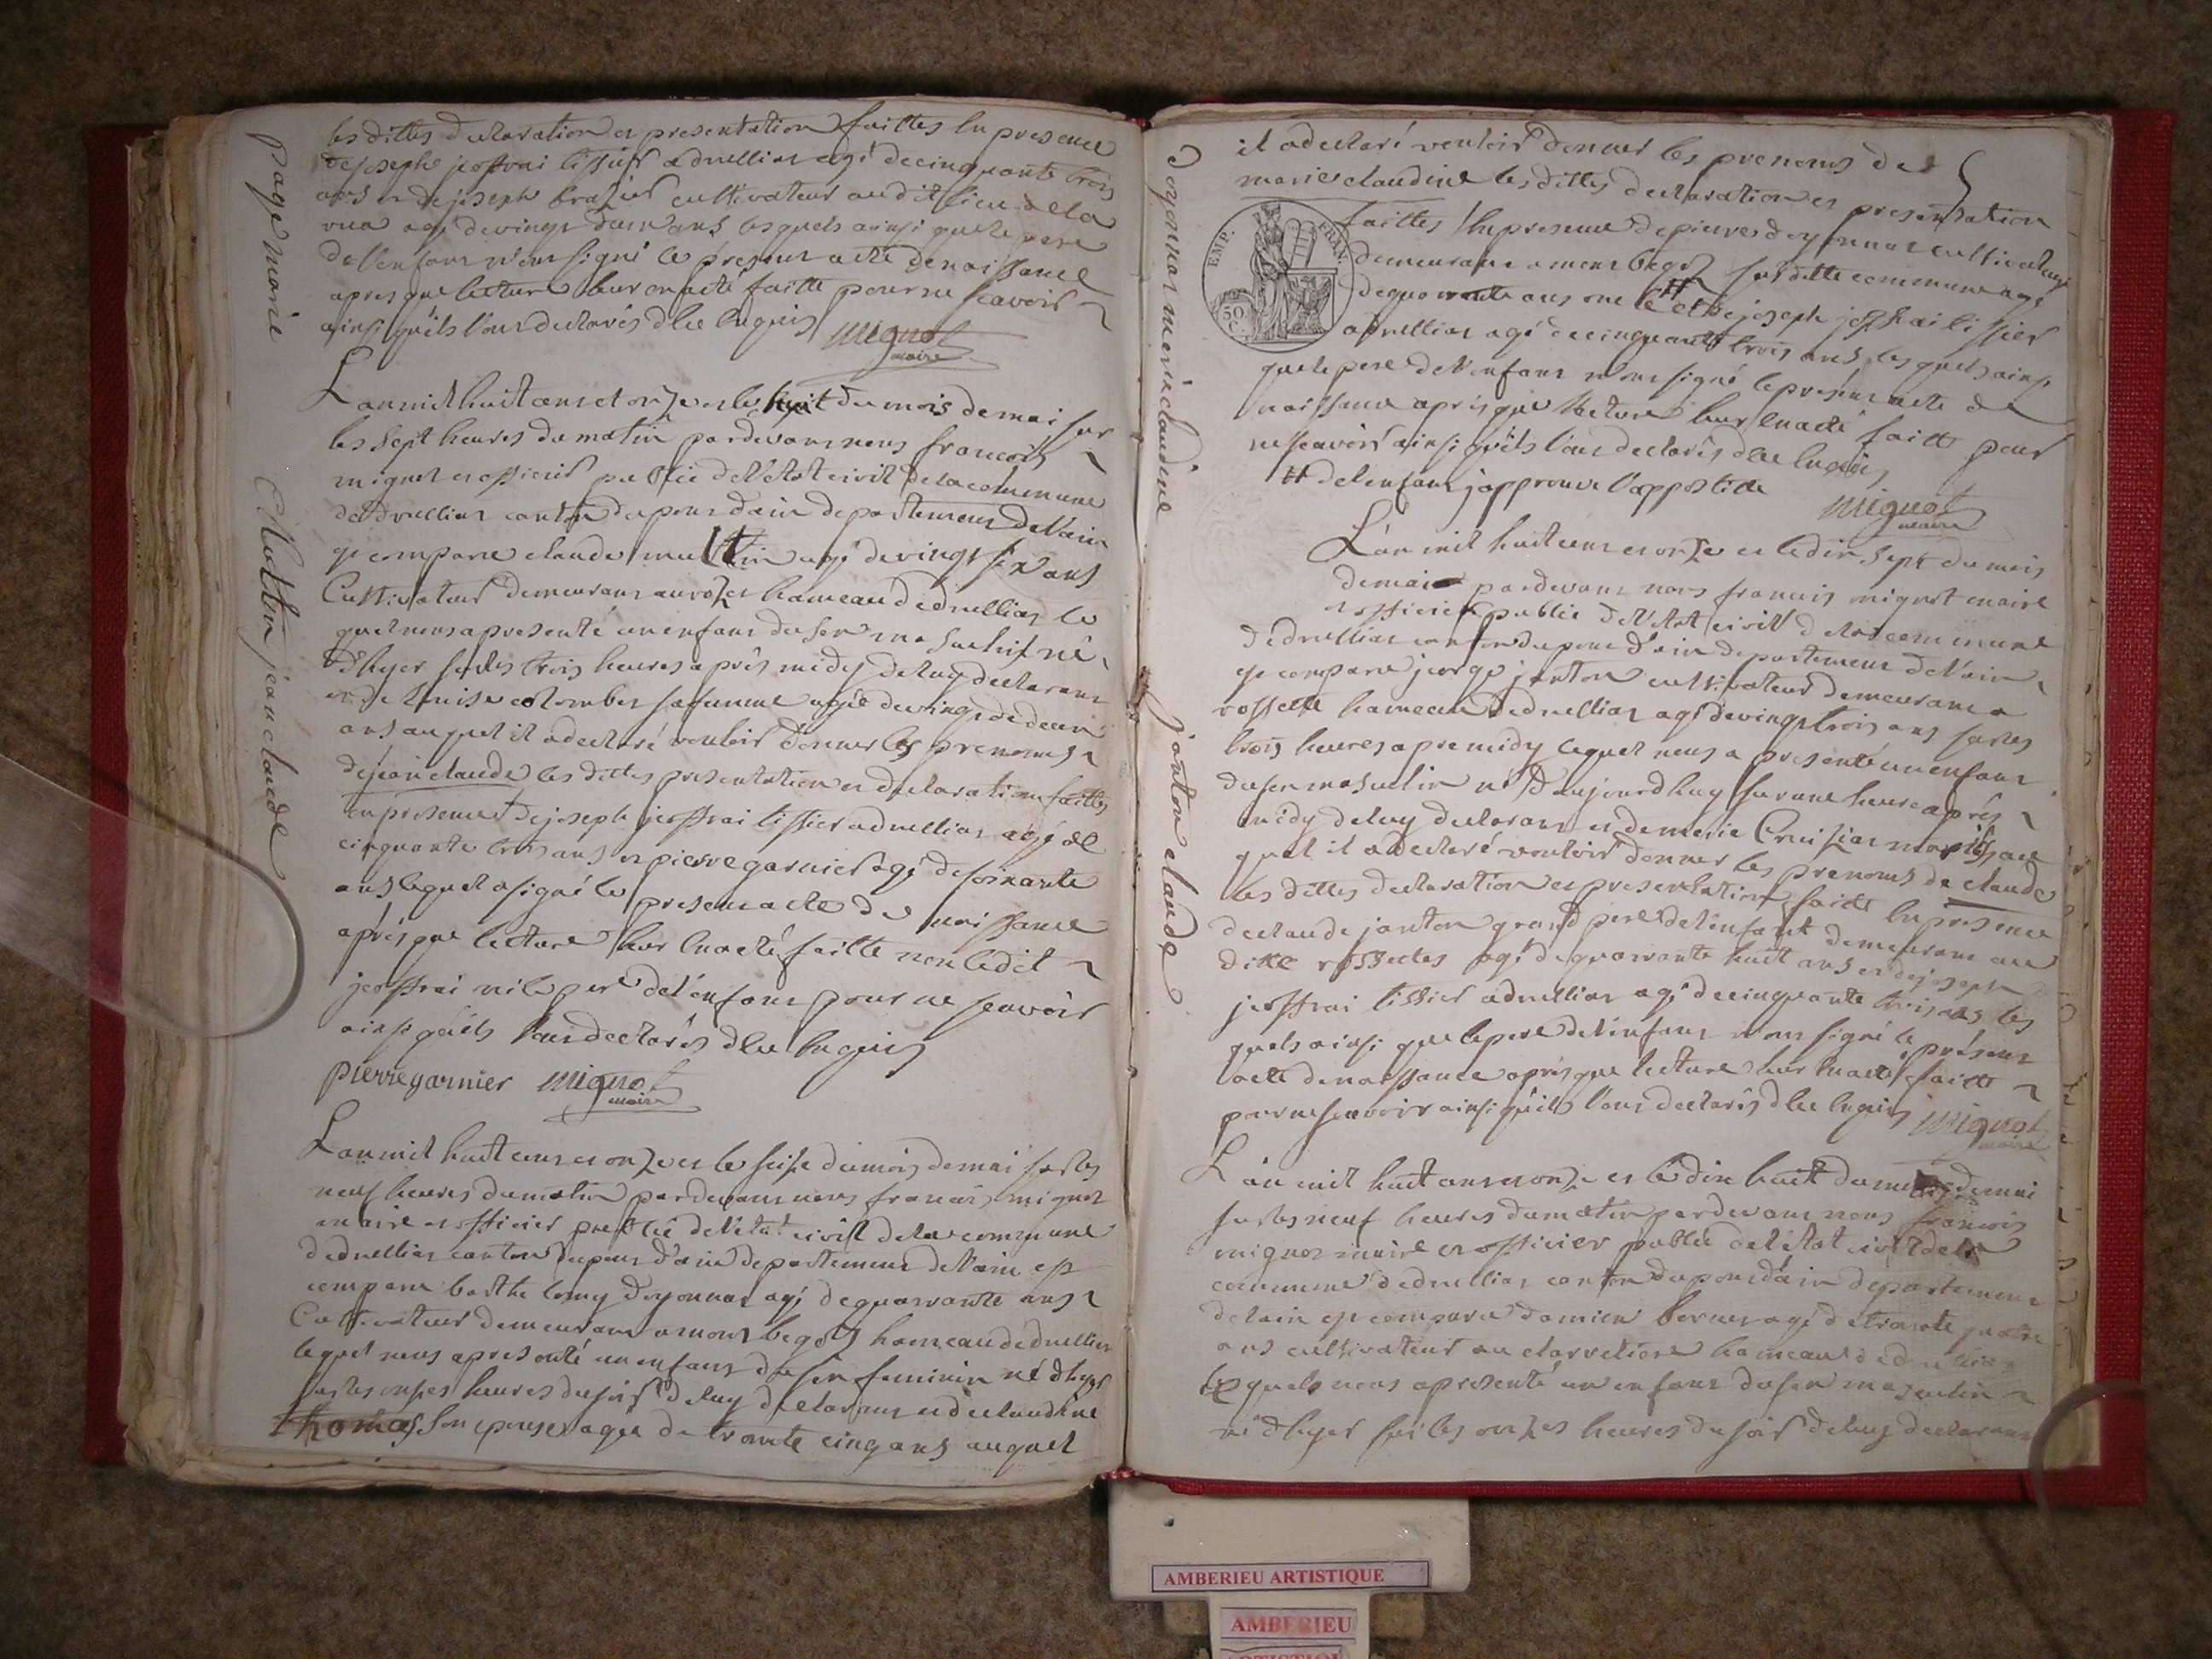 Page marie
les dittes declaration et presentation faittes en presence
de joseph jeoffrai tissier a druillias agé de cinquante trois
ans et de joseph brazier cultivateur audit lieu de la
rua agé de vingt deux ans lesquels ainsi que le pere
de l'enfant n'ont signé le present acte de naissance
apres que lecture leur en a eté faitte pour ne scavoir
ainsi qu'ils l'ont declarés d'ee enquis
mignot
maire
multin jean claude
L'an mil huit cens et onze et le huit du mois de mai sur
les sept heures du matin pardevant nous francois
mignot et officier public de l'état civil de la commune
de druillias canton du pont dain departement de l'ain
est comparu claude multin agé de vingt six ans
Cultivateur demeurant hameau de druillias le
quel nous a presenté un enfant du sexe masculin né
d'hyer sur les trois heures après midy de luy declarant
et de louise colomber sa femme agée de vingt de deux
ans auquel il a declaré vouloir donner les prenoms
de jean claude les dittes presentation et declaration faittes
en presence de joseph jeoffrai tissier a druillias agé de
cinquante trois ans et pierre garnier agé de soixante
ans lequel a signé le present acte de naissance
après que lecture leur en a eté faitte non ledit
jeoffrai ni le pere de l'enfant pour ne scavoir
ainsi qu'ils l'ont declarés d'ee enquis
pierre garnier mignot
maire
L'an mil huit cens et onze et le seise du mois de mai sur les
neuf heures du matin pardevant nous francois mignot
maire et officier public de l'état civil de la commune
de druillias canton du pont d'ain departement de l'ain est
comparu barthelemy doyonnax agé de quarante ans
Cultivateur demeurant a mont begoz hameau de druillias
lequel nous a presenté un enfant du sexe feminin né d'hyer
sur les onzes heures du soir de luy declarant et de claudine
thomas son epouse agée de trente cinq ans auquel
Doyonnax marie claudine
il a declaré vouloir donner les prenoms de
marie claudine les dittes declaration et presentation
EMP. FRAN.
50 C.
faittes en presence de pierre doyonnax cultivateur
demeurant a mont begoz sur ditte commune agé
de quarante ans # et de joseph jeoffrai tissier
a druillias agé de cinquante trois ans lesquels ainsi
que le pere de l'enfant n'ont signé le present acte de
naissance après que lecture leur en a eté faitte pour
ne scavoir ainsi qu'ils l'ont declarés d'ee enquis
# de l'enfant j'approuve l'appostille
mignot
maire
janton claude
L'an mil huit cens et onze et le dix sept du mois
de mai pardevant nous francois mignot maire
et officier public de l'état civil de la commune
de druillias canton du pont d'ain departement de l'ain
est comparu jorge janton cultivateur demeurant a
rossette hameau de druillias agé de vingt trois ans sur les
trois heures apre midy lequel nous a presenté un enfant
du sexe masculin né d'aujourdhuy sur une heure après
midy de luy declarant et de marie au
quel il a declaré vouloir donner les prenoms de claude
les dittes declaration et presentation faitte en presence
de claude janton grand pere de l'enfant demeurant au
dit rossettes agé de quarante huit ans et de joseph
jeoffrai tissier a druillias agé de cinquante trois ans les
quels ainsi que le pere de l'enfant n'ont signé le présent
acte de naissance après que lecture leur en a eté faitte
pour ne scavoir ainsi qu'ils l'ont declarés d'ee enquis mignot
maire
L'an mil huit cens et onze et le dix huit du mois de mai
sur les neuf heures du matin pardevant nous francois
mignot maire et officier public de l'état civil de la
commune de druillias canton du pont d'ain departement
de l'ain est comparu damien agé de trante quatre
ans cultivateur hameau de druillias
lequel nous a presenté un enfant du sexe masculin
né d'hyer sur les onzes heures du soir de luy declarant
AMBERIEU ARTISTIQUE
AMBERIEU
ARTISTIQUE